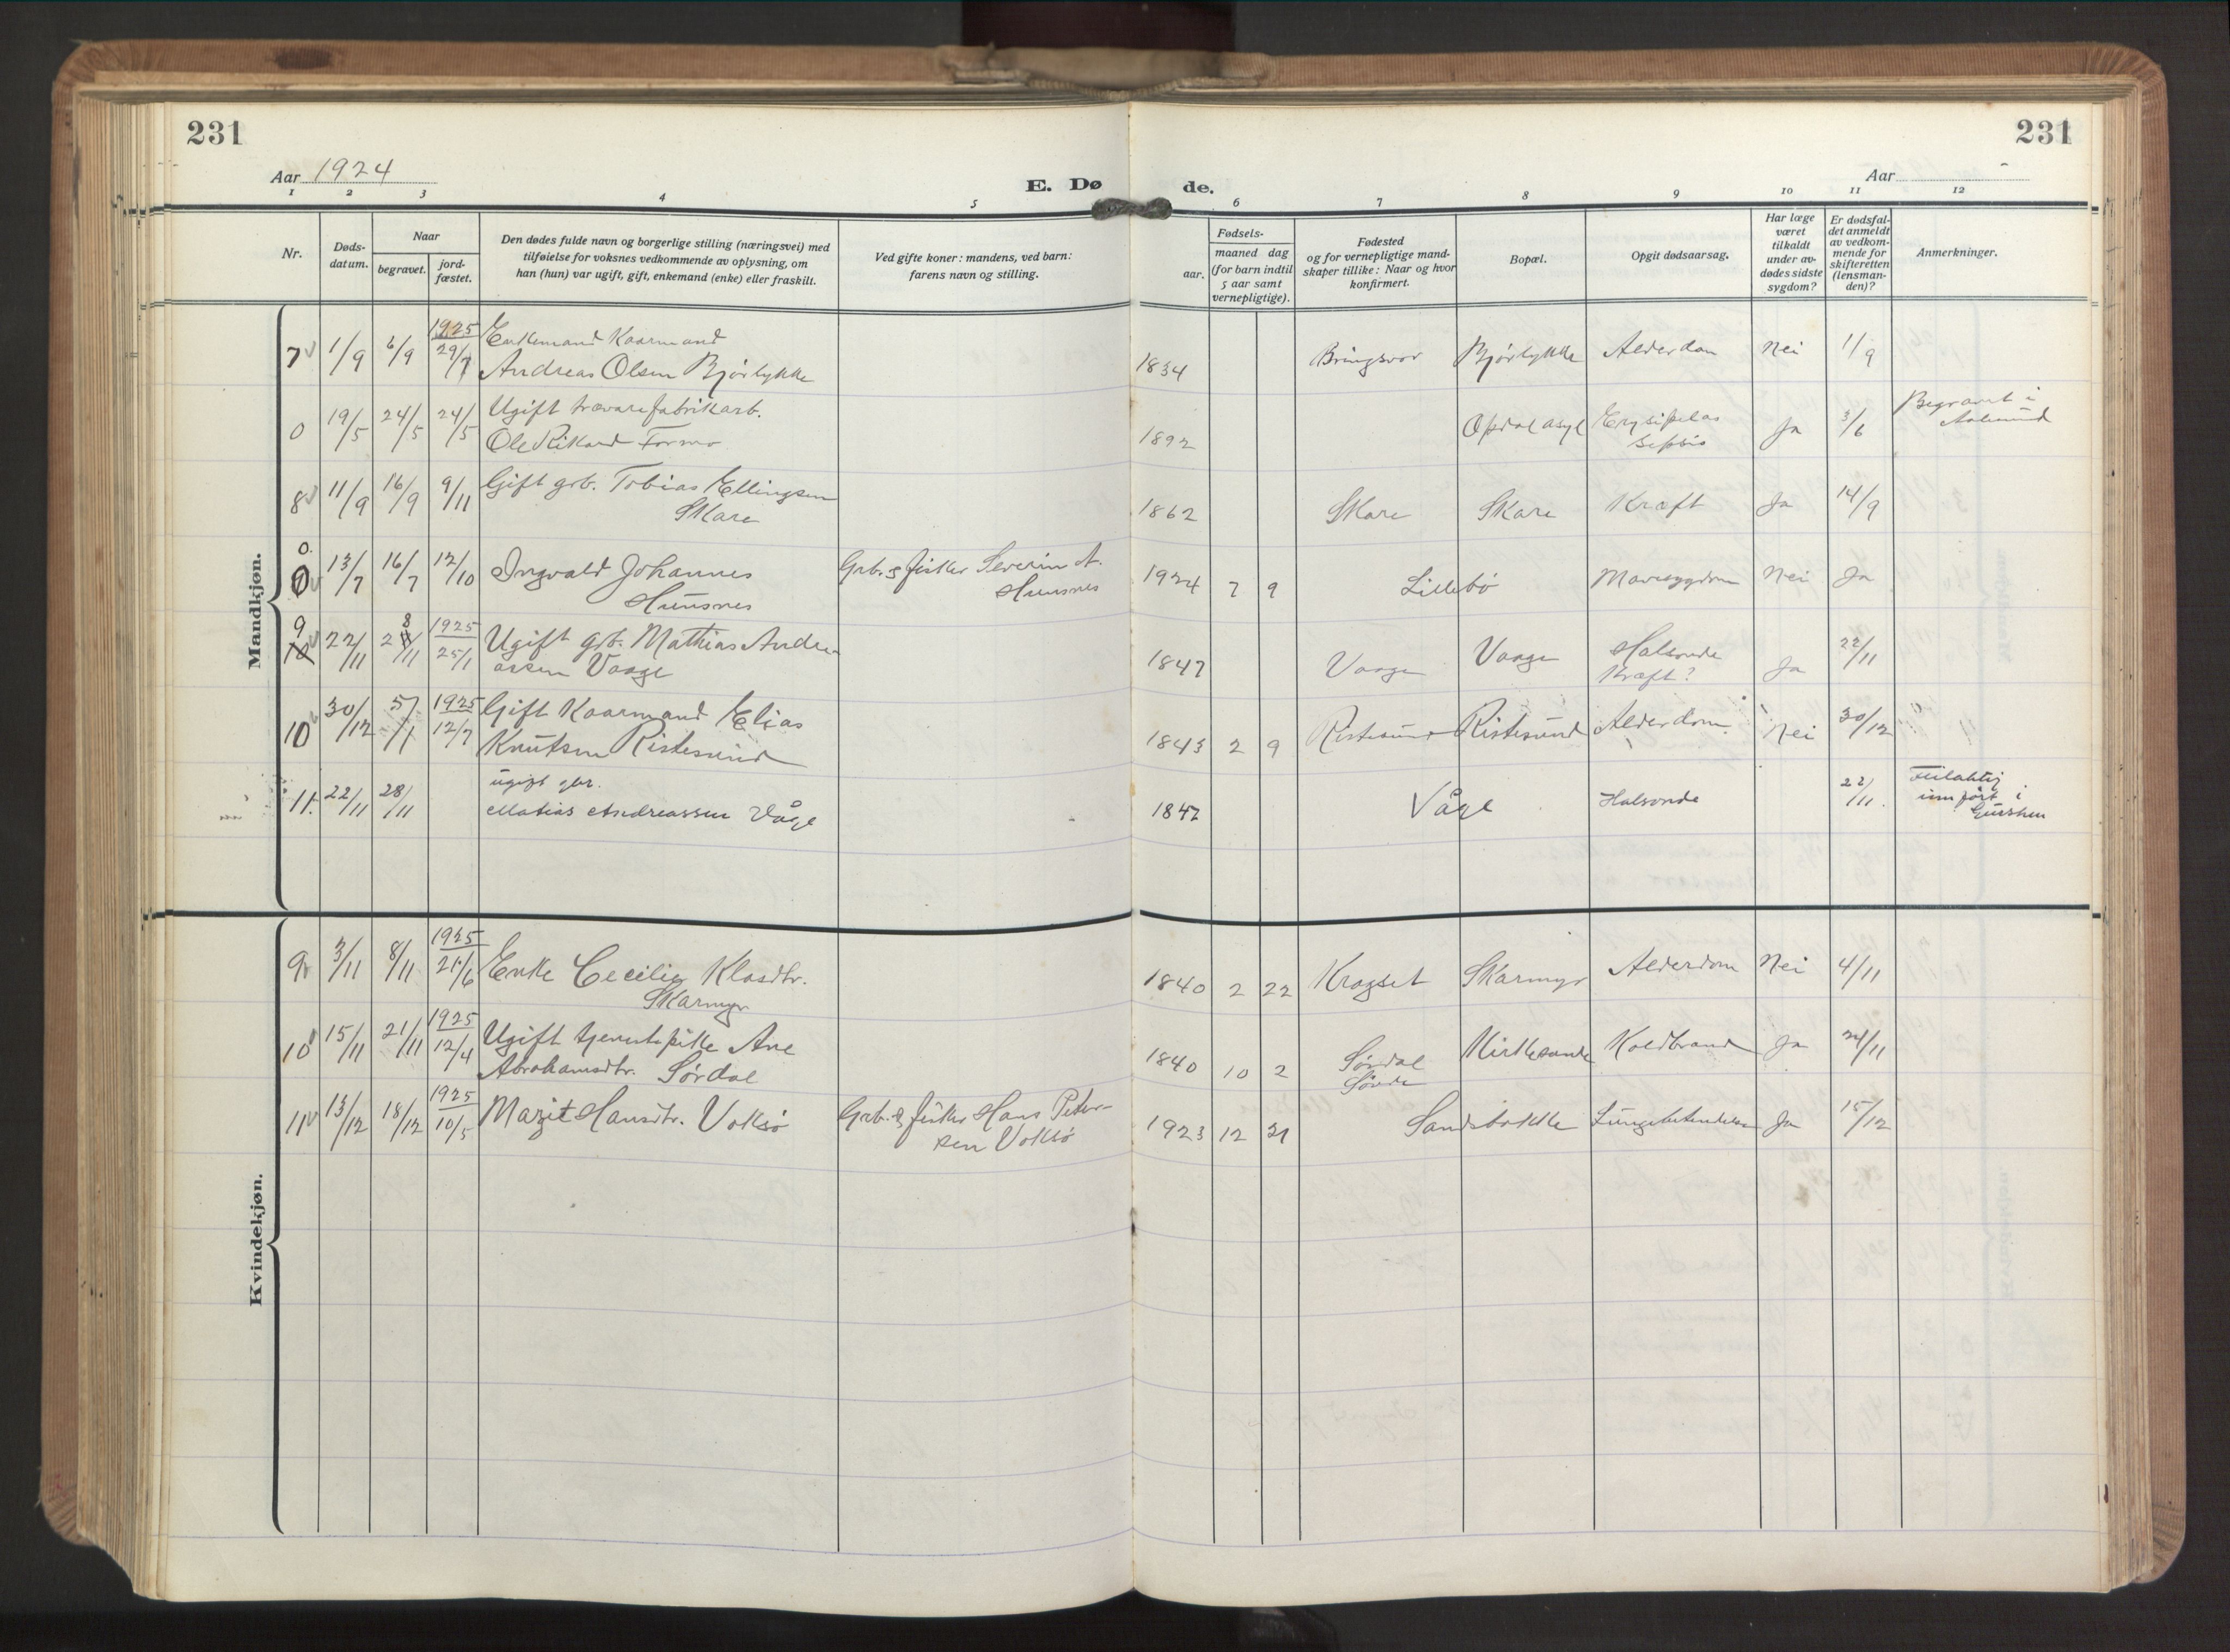 231
231
Aar 1924
E. Dø
de.
Aar
1 2 3 4 5 6 7 8 9 10 11 12
Nr.
Døds-
datum.
Naar
begravet.
jord-
fæstet.
Den dødes fulde navn og borgerlige stilling (næringsvei) med
tilføielse for voksnes vedkommende av oplysning, om
han (hun) var ugift, gift, enkemand (enke) eller fraskilt.
Ved gifte koner: mandens, ved barn:
farens navn og stilling.
Fødsels-
aar.
maaned dag
(for barn indtil
5 aar samt
vernepligtige).
Fødested
og for vernepligtige mand-
skaper tillike: Naar og hvor
konfirmert.
Bopæl.
Opgit dødsaarsag.
Har læge
været
tilkaldt
under av-
dødes sidste
sygdom?
Er dødsfal-
det anmeldt
av vedkom-
mende for
skifteretten
(lensman-
den)?
Anmerkninger.
Mandkjøn.
7 1/9 6/9 1925 29/7 Enkemand Kaarmand
Andreas Olsen Bjørlykke 1834 Bringsvor Bjørlykke Alderdom Nei 1/9
0 19/5 24/5 24/5 Ugift trævarefabrikarb.
Ole Rikard Formo 1892 Opdal asyl Erysipelas
sepsis Ja 3/6 Begravet i
Aalesund
8 11/9 16/9 9/11 Gift grb. Tobias Ellingsen
Skare 1862 Skare Skare Kræft Ja 14/9
0. 13/7 16/7 12/10 Ingvald Johannes
Hunsnes Grb. & fisker Severin A.
Hunsnes 1924 7 9 Lillebø Mavesygdom Nei Ja
9
10 22/11 28/11 1925 25/1 Ugift grb. Mathias Andre-
assen Vaage 1847 Vaage Vaage Halsonde
Kræft? Ja 22/11
10 30/12 5/1 1925 12/7 Gift Kaarmand Elias
Knutsen Ristesund 1843 2 9 Ristesund Ristesund Alderdom Nei 30/12
11. 22/11 28/11 ugift gbr.
Matias Andreassen Våge 1847 Våge Halsonde 22/11. Feilaktig
innført i
Gursken
Kvindekjøn.
9 3/11 8/11 1925 21/6 Enke Cecilie Klasdtr.
Skarmyr 1840 2 22 Kragset Skarmyr Alderdom Nei 4/11
10 15/11 21/11 1925 12/4 Ugift tjenestepike Ane
Abrahamsdtr. Sørdal 1840 10 2 Sørdal
Søvde Kirkesande Koldbrand Ja 24/11
11 13/12 18/12 1925 10/5 Margit Hansdtr. Voksø Grb. & fisker Hans Peter-
sen Voksø 1923 12 21 Sandsbakke Lungebetendelse Ja 15/12